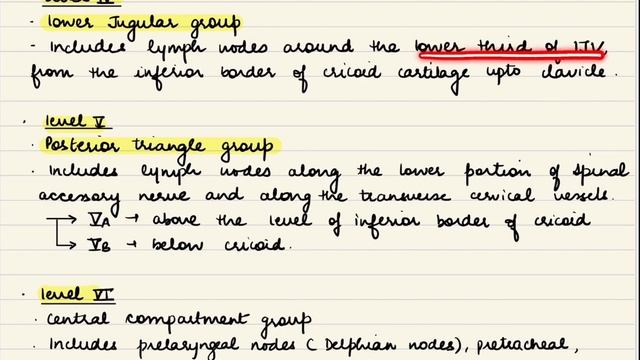 · lower Jugular group
- Includes lymph nodes around the lower third of IJV,
from the inferior border of cricoid cartilage upto clavicle.
· level V
· Posterior triangle group
· Includes lymph nodes along the lower portion of spinal
accessory nerve and along the transverse cervical vessels.
→ VA → above the level of inferior border of cricoid
↳ VB → below cricoid.
· level VI
· Central compartment group
· Includes prelaryngeal nodes (Delphian nodes), pretracheal,